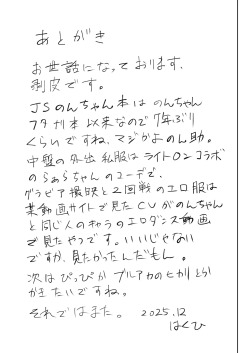 あとがき
お世話になっております、
剥皮です。
JSのんちゃん本はのんちゃん
フタナリ本以来なので7年ぶり
くらいですね、マジかよのん助。
中盤の外出私服はライトオンコラボ
のらぁらちゃんのコーデで、
グラビア撮映と2回戦のエロ服は
某動画サイトで見たCVがのんちゃん
と同じ人のキャラのエロダンス動画
で見たやつです。いいじゃない
ですか、見たかったんだもん。
次はぴっぴか ブルアカのヒカリとか
かきたいですね。
それではまた。 2025.12
はくひ